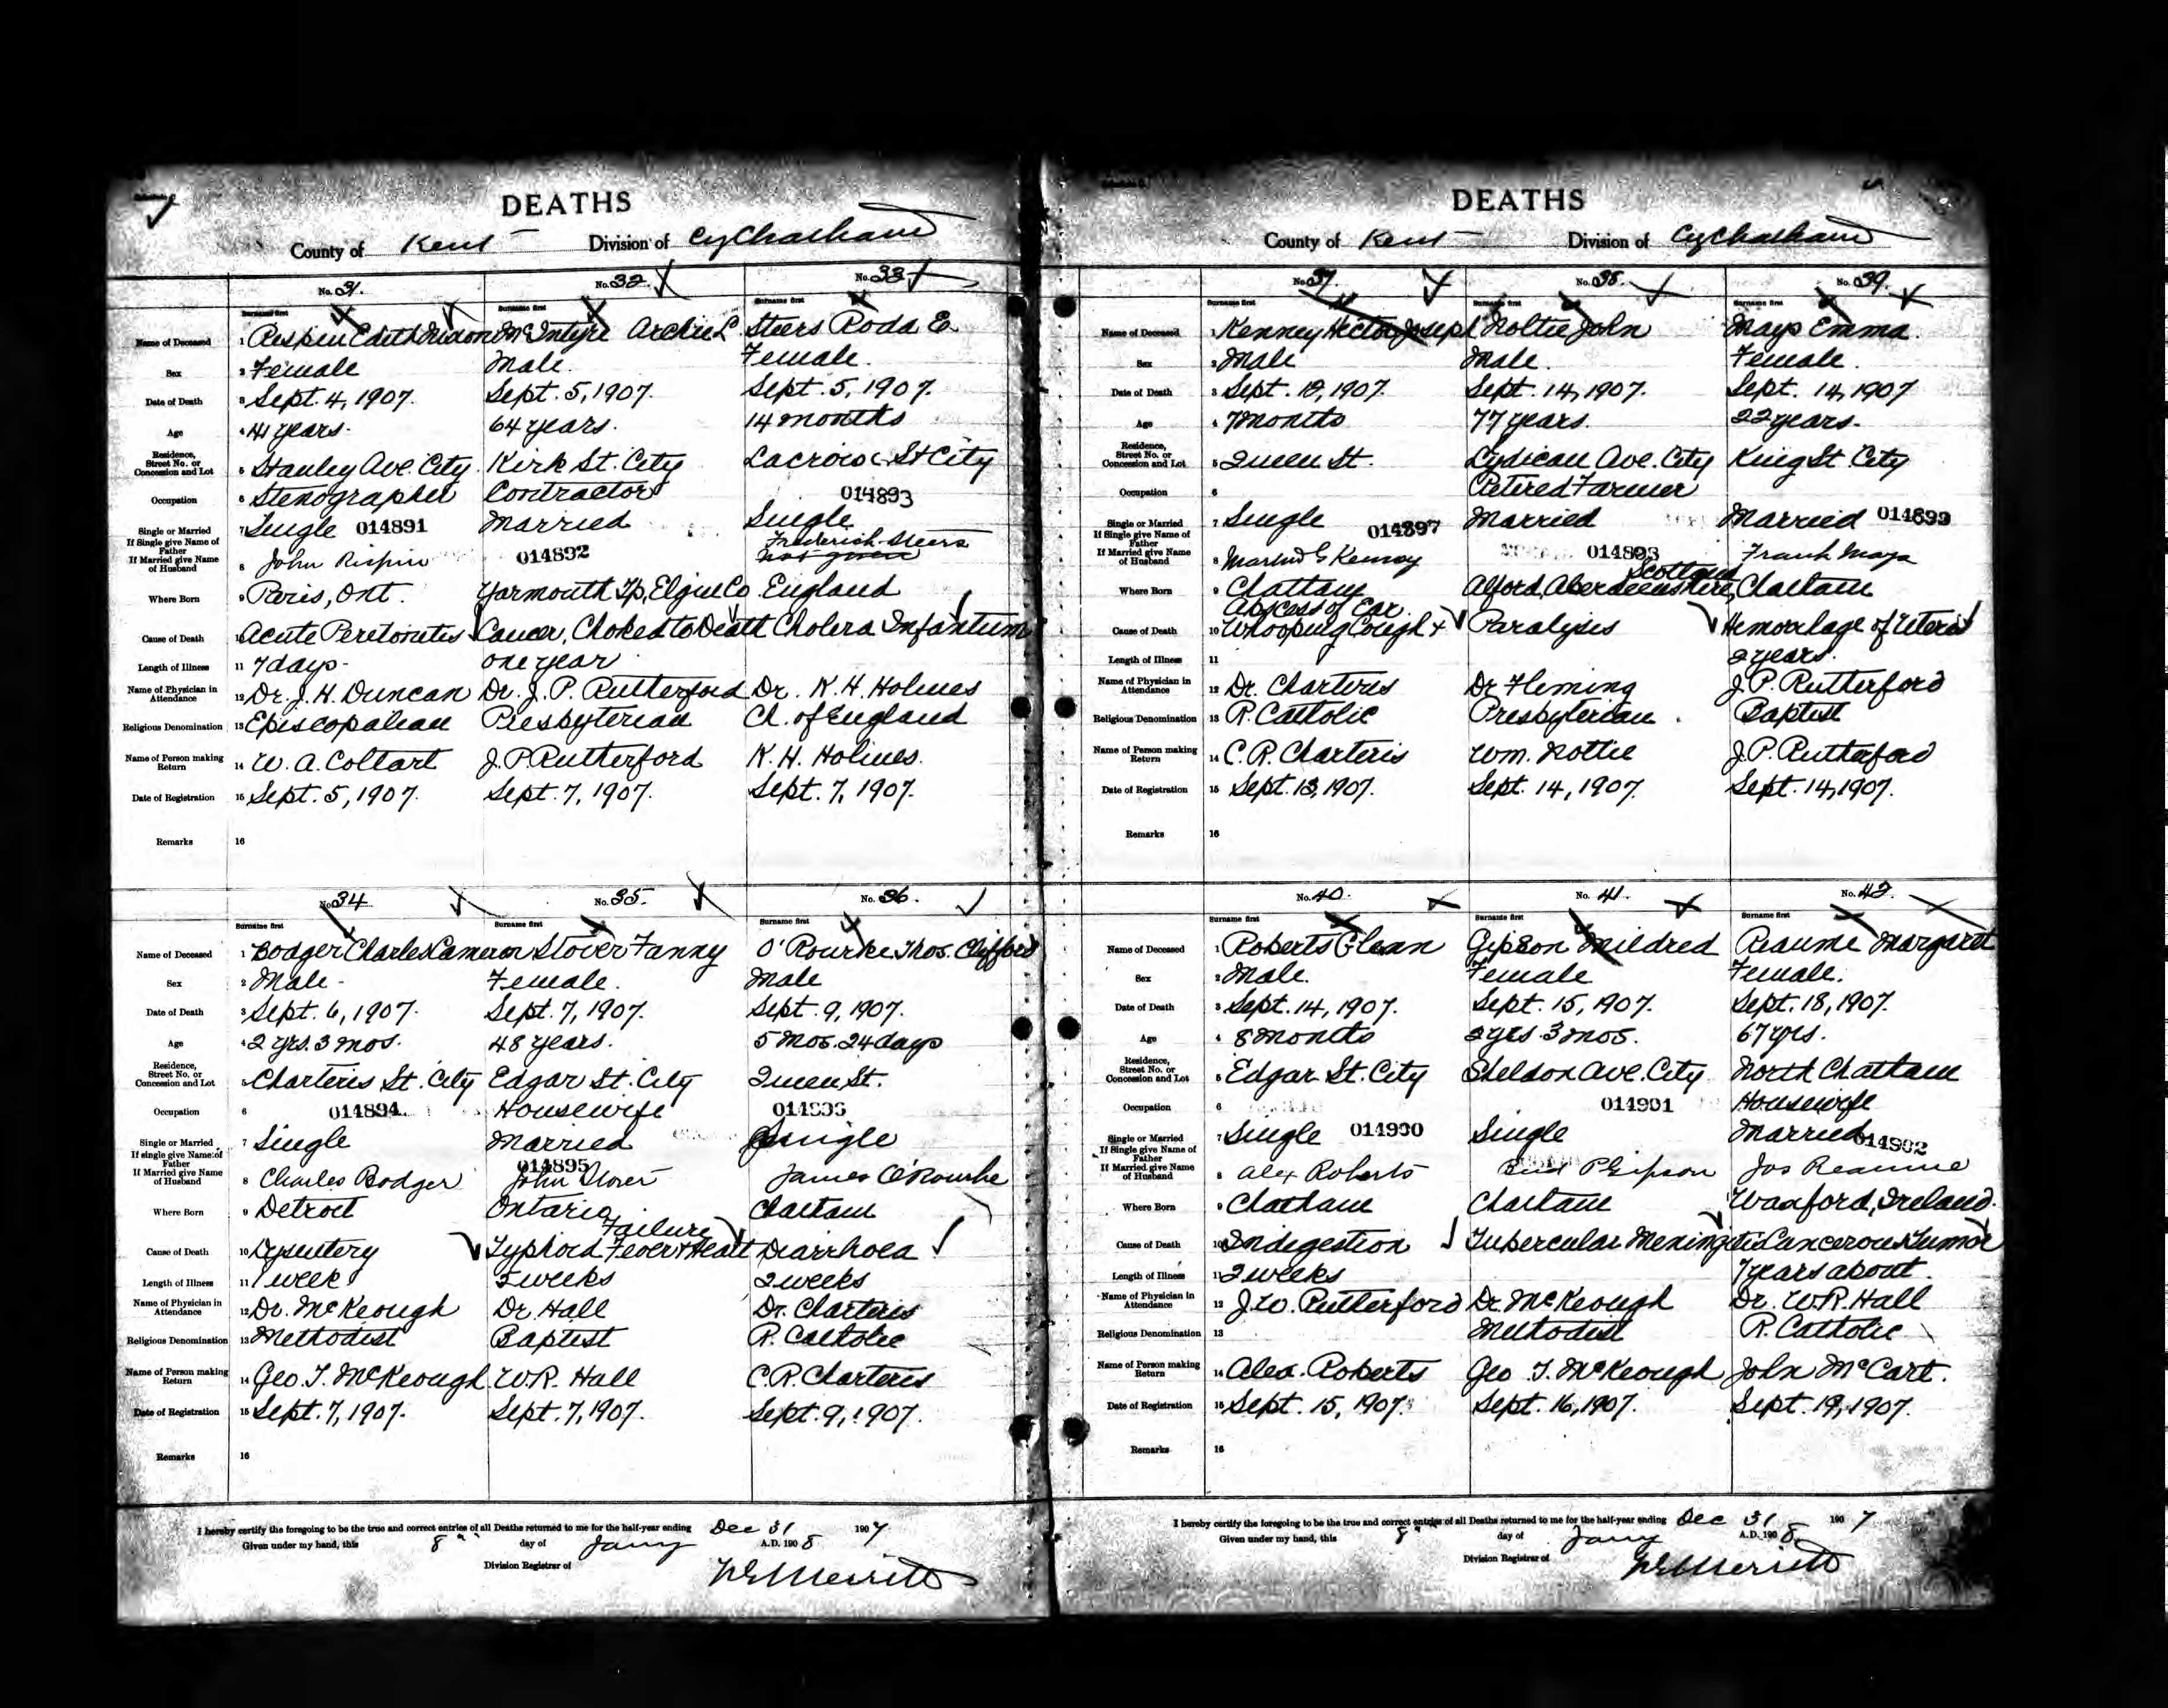 DEATHS
County of Kent Division of Cy Chatham
No. 31. No. 32. No. 33
Surname first Surname first Surname first
Name of Deceased 1 Rispin Edith McIntyre Archie L. Steers Roda E.
Sex 2 Female Male. Female.
Date of Death 3 Sept. 4, 1907. Sept. 5, 1907. Sept. 5, 1907.
Age 4 41 years. 64 years. 14 months
Residence, Street No. or Concession and Lot 5 Stanley Ave. City. Kirk St. City Lacroix St City
Occupation 6 Stenographer Contractor 014893
Single or Married 7 Single 014891 Married Single
If Single give Name of Father
If Married give Name of Husband 8 John Rispin 014892 Frederick Steers not given
Where Born 9 Paris, Ont. Yarmouth Tp, Elgin Co. England
Cause of Death 10 Acute Peritonites Cancer, Choked to Death Cholera Infantum
Length of Illness 11 7 days. one year
Name of Physician in Attendance 12 Dr. J. H. Duncan Dr. J. P. Rutherford Dr. K. H. Holmes
Religious Denomination 13 Episcopalian Presbyterian Ch. of England
Name of Person making Return 14 W. A. Coltart J. P. Rutherford K. H. Holmes.
Date of Registration 15 Sept. 5, 1907. Sept. 7, 1907. Sept. 7, 1907.
Remarks 16
No. 34 No. 35. No. 36.
Surname first Surname first Surname first
Name of Deceased 1 Bodger Charles Cameron Stover Fanny O'Rourke Thos. Clifford
Sex 2 Male. Female. Male
Date of Death 3 Sept. 6, 1907. Sept. 7, 1907. Sept. 9, 1907.
Age 4 2 yrs. 3 mos. 48 years. 5 mos. 24 days
Residence, Street No. or Concession and Lot 5 Charteris St. City Edgar St. City Queen St.
Occupation 6 014894 Housewife 014896
Single or Married 7 Single Married Single
If single give Name of Father
If Married give Name of Husband 8 Charles Bodger 014895 John Stover James O'Rourke
Where Born 9 Detroit Ontario Chatham
Cause of Death 10 Dysentery Typhoid Fever & Heart Failure Diarrhoea
Length of Illness 11 1 week 5 weeks 2 weeks
Name of Physician in Attendance 12 Dr. McKeough Dr. Hall Dr. Charteris
Religious Denomination 13 Methodist Baptist R. Catholic
Name of Person making Return 14 Geo. T. McKeough W.R. Hall C.R. Charteris
Date of Registration 15 Sept. 7, 1907. Sept. 7, 1907. Sept. 9, 1907.
Remarks 16
I hereby certify the foregoing to be the true and correct entries of all Deaths returned to me for the half-year ending Dec 31 1907
Given under my hand, this 8th day of Jany A.D. 1908
Division Registrar of W E Merritt
DEATHS
County of Kent Division of Cy Chatham
No. 37. No. 38. No. 39.
Surname first Surname first Surname first
Name of Deceased 1 Kenney Hector Joseph Noltie John Mays Emma.
Sex 2 Male Male. Female.
Date of Death 3 Sept. 12, 1907. Sept. 14, 1907. Sept. 14, 1907
Age 4 7 months 77 years. 22 years.
Residence, Street No. or Concession and Lot 5 Queen St. Lydican Ave. City King St. City
Occupation 6 Retired Farmer
Single or Married 7 Single 014897 Married Married 014899
If Single give Name of Father
If Married give Name of Husband 8 G Kenney 014898 Frank Mays
Where Born 9 Chatham Alford, Aberdeenshire, Scotland Chatham
Cause of Death 10 Whooping Cough & Abscess of Ear. Paralysis Hemorrhage of Uterus
Length of Illness 11 2 years.
Name of Physician in Attendance 12 Dr. Charteris Dr Fleming J. P. Rutherford
Religious Denomination 13 R. Catholic Presbyterian. Baptist
Name of Person making Return 14 C. R. Charteris Wm. Noltie J. P. Rutherford
Date of Registration 15 Sept. 13, 1907. Sept. 14, 1907. Sept. 14, 1907.
Remarks 16
No. 40. No. 41. No. 42.
Surname first Surname first Surname first
Name of Deceased 1 Roberts Glenn Gipson Mildred Reaume Margaret
Sex 2 Male. Female Female.
Date of Death 3 Sept. 14, 1907. Sept. 15, 1907. Sept. 18, 1907.
Age 4 8 months 2 yrs 3 mos. 67 yrs.
Residence, Street No. or Concession and Lot 5 Edgar St. City Sheldon Ave. City North Chatham
Occupation 6 014901 Housewife
Single or Married 7 Single 014900 Single Married 014902
If Single give Name of Father
If Married give Name of Husband 8 Alex Roberts P Gipson Jos Reaume
Where Born 9 Chatham Chatham Waxford, Ireland.
Cause of Death 10 Indigestion Tubercular Meningitis Cancerous Tumor
Length of Illness 11 2 weeks 7 years about.
Name of Physician in Attendance 12 J. W. Rutherford Dr. McKeough Dr. W. R. Hall
Religious Denomination 13 Methodist R. Catholic
Name of Person making Return 14 Alex. Roberts Geo T. McKeough John McCart.
Date of Registration 15 Sept. 15, 1907. Sept. 16, 1907. Sept. 19, 1907.
Remarks 16
I hereby certify the foregoing to be the true and correct entries of all Deaths returned to me for the half-year ending Dec 31 1907
Given under my hand, this 8th day of Jany A.D. 1908
Division Registrar of W E Merritt